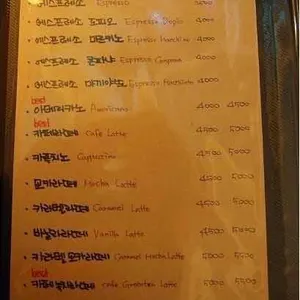 에스프레소 Espresso
에스프레소 도피오 Espresso Dopio 4000
에스프레소 Espresso 4000
에스프레소 Espresso 4000
에스프레소 Espresso 4000
best
아메리카노 Americano 4000 4500
best
카페라떼 Cafe Latte 4500 5000
카푸치노 Cappuccino 4500 5000
모카라떼 Mocha Latte 4500 5000
카라멜라떼 Caramel Latte 4500 5000
바닐라라떼 Vanilla Latte 4500 5000
카라멜 모카라떼 Caramel Mocha Latte 5000 5500
best
Cafe Greentea Latte 5000 5500